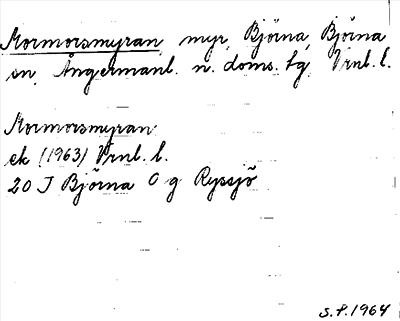 Mormorsmyran, myr, Björna, Björna
sn, Ångermanl. n. doms. tg, Vrnl. l.
Mormorsmyran
ek (1963) Vrnl. l.
20 J Björna O g Ryssjö
S.P. 1964